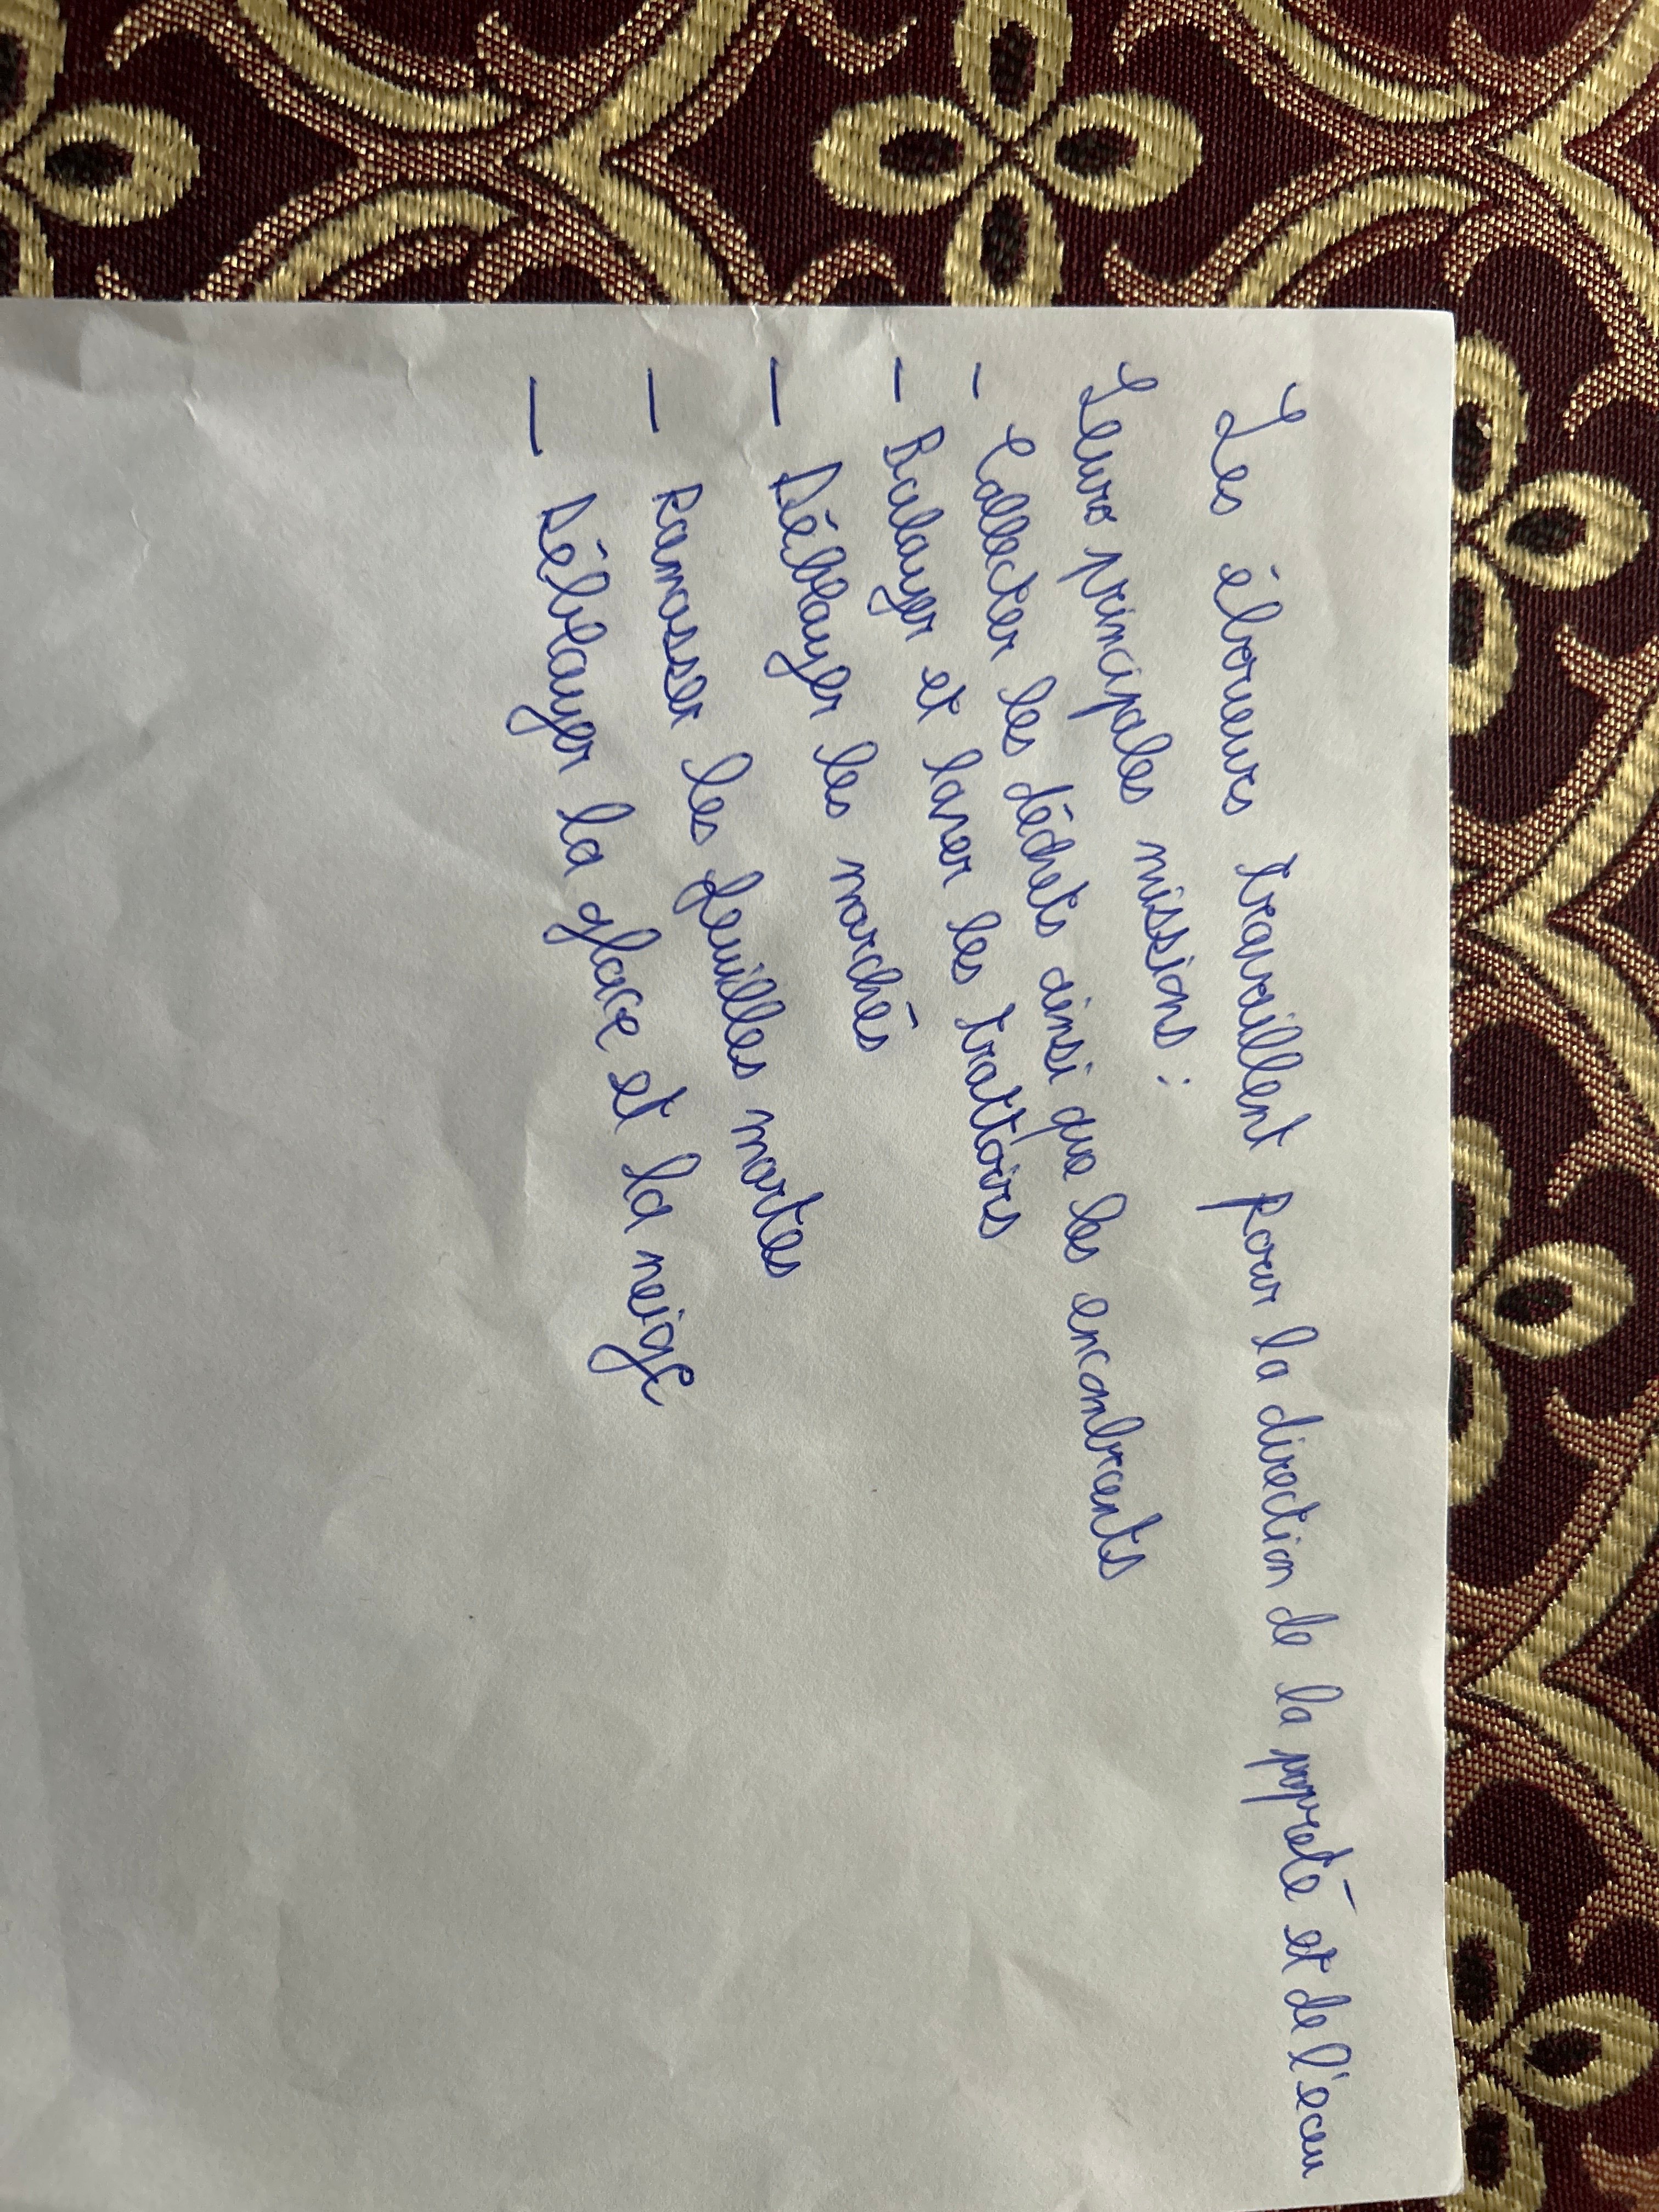 Les éboueurs travaillent pour la direction de la propreté et de l'eau
Leurs principales missions :
- Collecter les déchets ainsi que les encombrants
- Balayer et laver les trattoirs
- Déblayer les marchés
- Ramasser les feuilles mortes
- Déblayer la glace et la neige